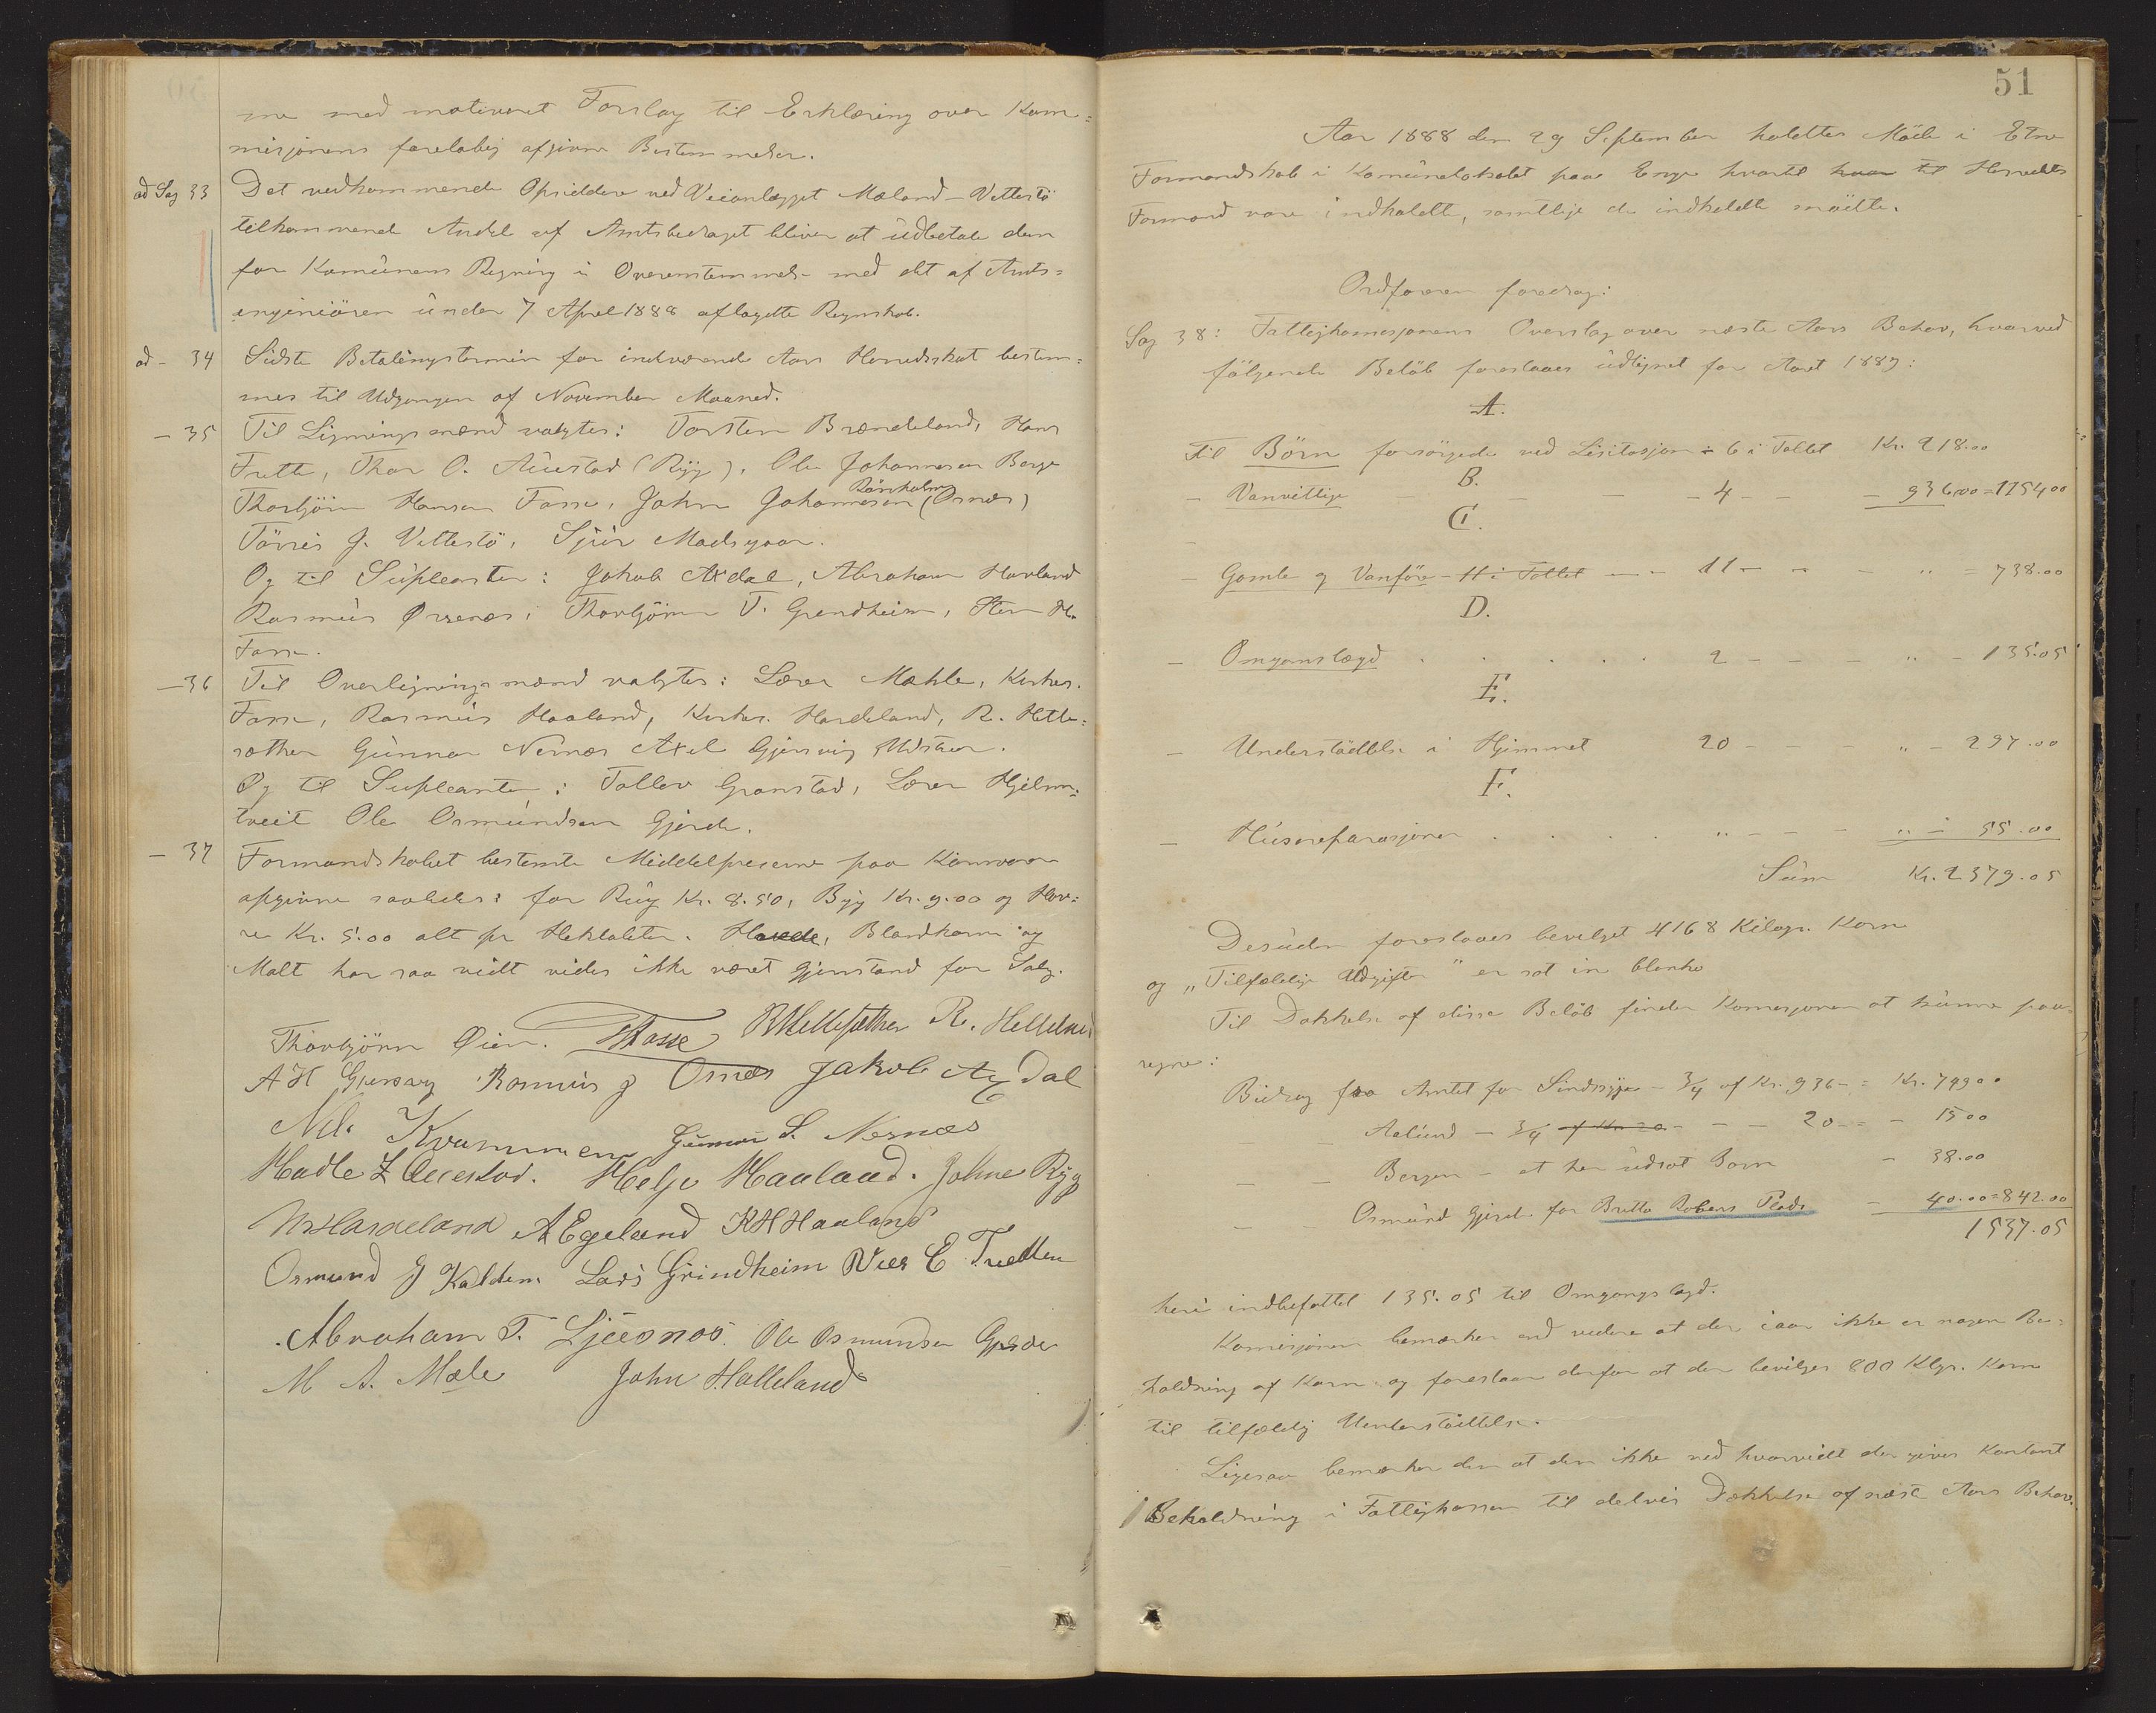 me med motiveret Forslag til Erklæring over Kom=
misjonens foreløbig afgivne Bestemmelser.
ad Sag 33 Det vedkommende Opsiddere ved Veianlægget Mæland - Vettestø
tilkommende Andel af Amtsbidraget bliver at üdbetale dem
for Komünens Regning i Overensstemmelse med det af Amts=
ingeniören ünder 7 April 1888 aflagte Regnskab.
ad - 34 Sidste Betalingstermin for indeværende Aars Herredsskat bestem=
mes til Udgangen af November Maaned.
- 35 Til Ligningsmænd valgtes: Torsten Brændeland, Hans
Frette, Thor O. Aüestad (Rygg), Ole Johannesen Berge
Thorbjörn Hansen Fosse, John Johannesen Rönholm (Osnes)
Törris J. Vettestö, Sjür Madsgaar.
Og til Süpleanter: Jakob Axdal, Abraham Havland
Rasmüs Ørsenes, Thorbjörn T. Grindheim, Sten H.
Fosse.
- 36 Til Overligningsmænd valgtes: Lærer Mæhle, Kirkes.
Fosse, Rasmüs Haaland, Kirkes. Hardeland, R. Helle=
sæther Günnar Nernæs Axel Gjersvig Mdstun.
Og til Supleanter: Tollev Granstad, Lærer Hjelm=
tveit Ole Osmündsen Gjerde.
- 37 Formandskabet bestemte Middelpriserne paa Kornvarer
afgivne saaledes: for Rüg Kr. 8.50, Byg Kr. 9.00 og Hav=
re Kr. 5.00 alt pr Hektoliter. Hvede, Blandkorn og
Malt har saa vidt vides ikke været Gjenstand for Salg.
Thorbjörn Øien. HFosse RHellesæther R. Helleland
A H Gjersvig Rasmüs J Osnes Jakob Axdal
Nils Kvammen Günnar S. Nernæs
Hadle L Auestad. Helge Haaland. Johne Ryg
Hardeland A Egeland K H Haaland
Osmund J Kalden Lars Grindheim Nils E Tvedten
Abraham T. Ljüsnæs. Ole Osmundsen Gjerde
M A. Mæle John Halleland
51
Aar 1888 den 29 September holdtes Möde i Etne
Formandskab i Komünelokalet paa Enge hvortil Herredets
Formænd vare indkaldte, samtlige de indkaldte mödte.
Ordföreren foredrog:
Sag 38: Fattigkomisjonens Overslag over næste Aars Behov, hvorved
fölgende Belöb foreslaaes üdlignet for Aaret 1889:
A.
Til Börn forsörgede ved Lisitasjon - 6 i Tallet Kr. 218.00
B.
- Vanvittige - - - 4 - - - 936.00 = 1154.00
C.
- Gamle og Vanföre - 11 i Tallet - - 11 - - - " = 738.00
D.
- Omganslægd . . . . . 2 - - - " - 135.05
E.
- Understöddelse i Hjemmet 20 - - " - 297.00
F.
- Hüsreparasjoner . . . . " - - - " - 55.00
Süm Kr. 2379.05
Desüden foreslaaes bevilget 4168 Kilogr. Korn
og "Tilfældige Udgifter" er sat in blanko
Til Dækkelse af disse Belöb finder Komisjonen at künne paa=
regne:
Bidrag fra Amtet for Sindssyge - 3/4 af Kr. 936 - = Kr. 749.00
- - Aalünd - 3/4 af Kr 20 - - - 20 - - - 15.00
- - Bergen - et her üdsat Barn - 38.00
- - Osmünd Gjerde for Britta Robens Plads - 40.00 = 842.00
1537.05
heri indbefattet 135.05 til Omgangslægd.
Komisjonen bemærker end videre at der iaar ikke er nogen Be=
holdning af Korn og foreslaar derfor at der bevilges 800 Klgr. Korn
til tilfældig Understöttelse.
Ligesaa bemærker den at den ikke ved hvorvidt der gives Kontant
Beholdning i Fattigkassen til delvis Dækkelse af næste Aars Behov.